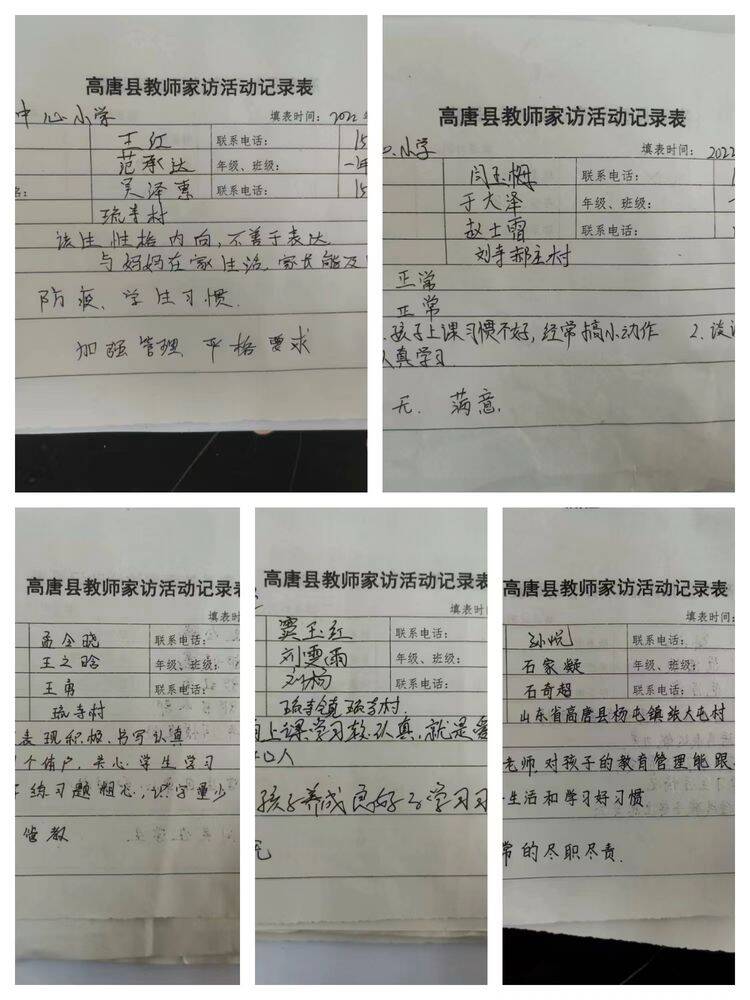 高唐县教师家访活动记录表
中心小学 填表时间：2022年
王红 联系电话： 15
范承达 年级、班级： 一年
名： 吴泽惠 联系电话： 15
琉寺村
该生性格内向，不善于表达
与妈妈在家生活，家长能及
防疫、学生习惯.
加强管理 严格要求
高唐县教师家访活动记录表
小学 填表时间： 2022
闫玉姗 联系电话： 1
于大泽 年级、班级： 一
赵士霞 联系电话： 1
刘寺郝庄村
正常
正常
.孩子上课习惯不好，经常搞小动作 2.谈
认真学习.
无. 满意.
高唐县教师家访活动记录表
填表时
孟令晓 联系电话：
王之晗 年级、班级：
王勇 联系电话：
琉寺村
表现积极、书写认真
个体户，关心学生学习
练习题粗心，识字量少
高唐县教师家访活动记录表
填表时间
窦玉红 联系电话：
刘雯雨 年级、班级：
刘杨 联系电话：
琉寺镇琉寺村.
上课学习较认真，就是爱
口人
孩子养成良好的学习习
无
高唐县教师家访活动记录表
填表时间：
孙悦 联系电话：
石家凝 年级、班级：
石奇超 联系电话：
山东省高唐县杨屯镇张大屯村
老师，对孩子的教育管理能跟
生活和学习好习惯
常的尽职尽责.